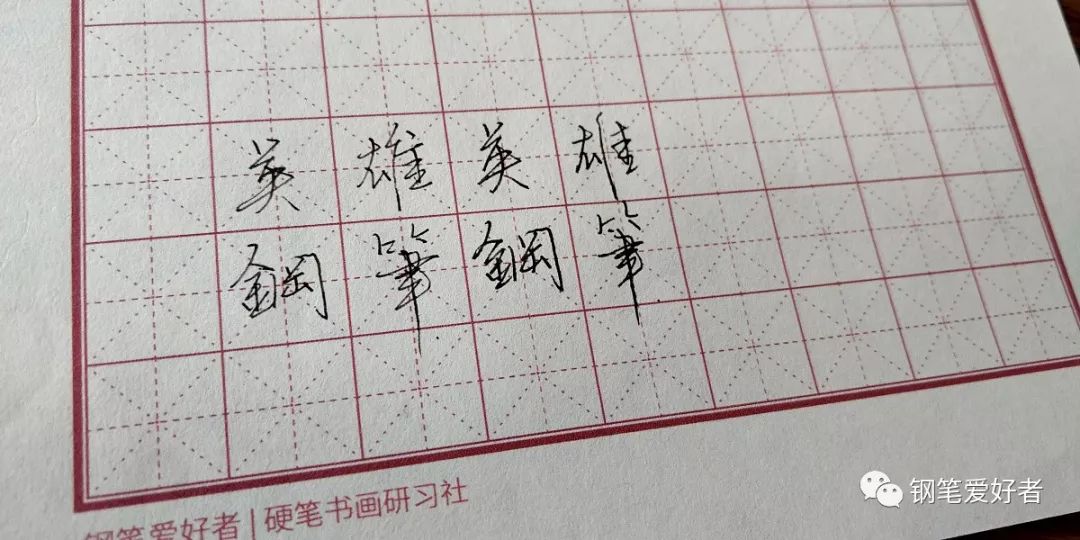 英雄英雄
鋼筆鋼筆
钢笔爱好者 | 硬笔书画研习社
钢笔爱好者